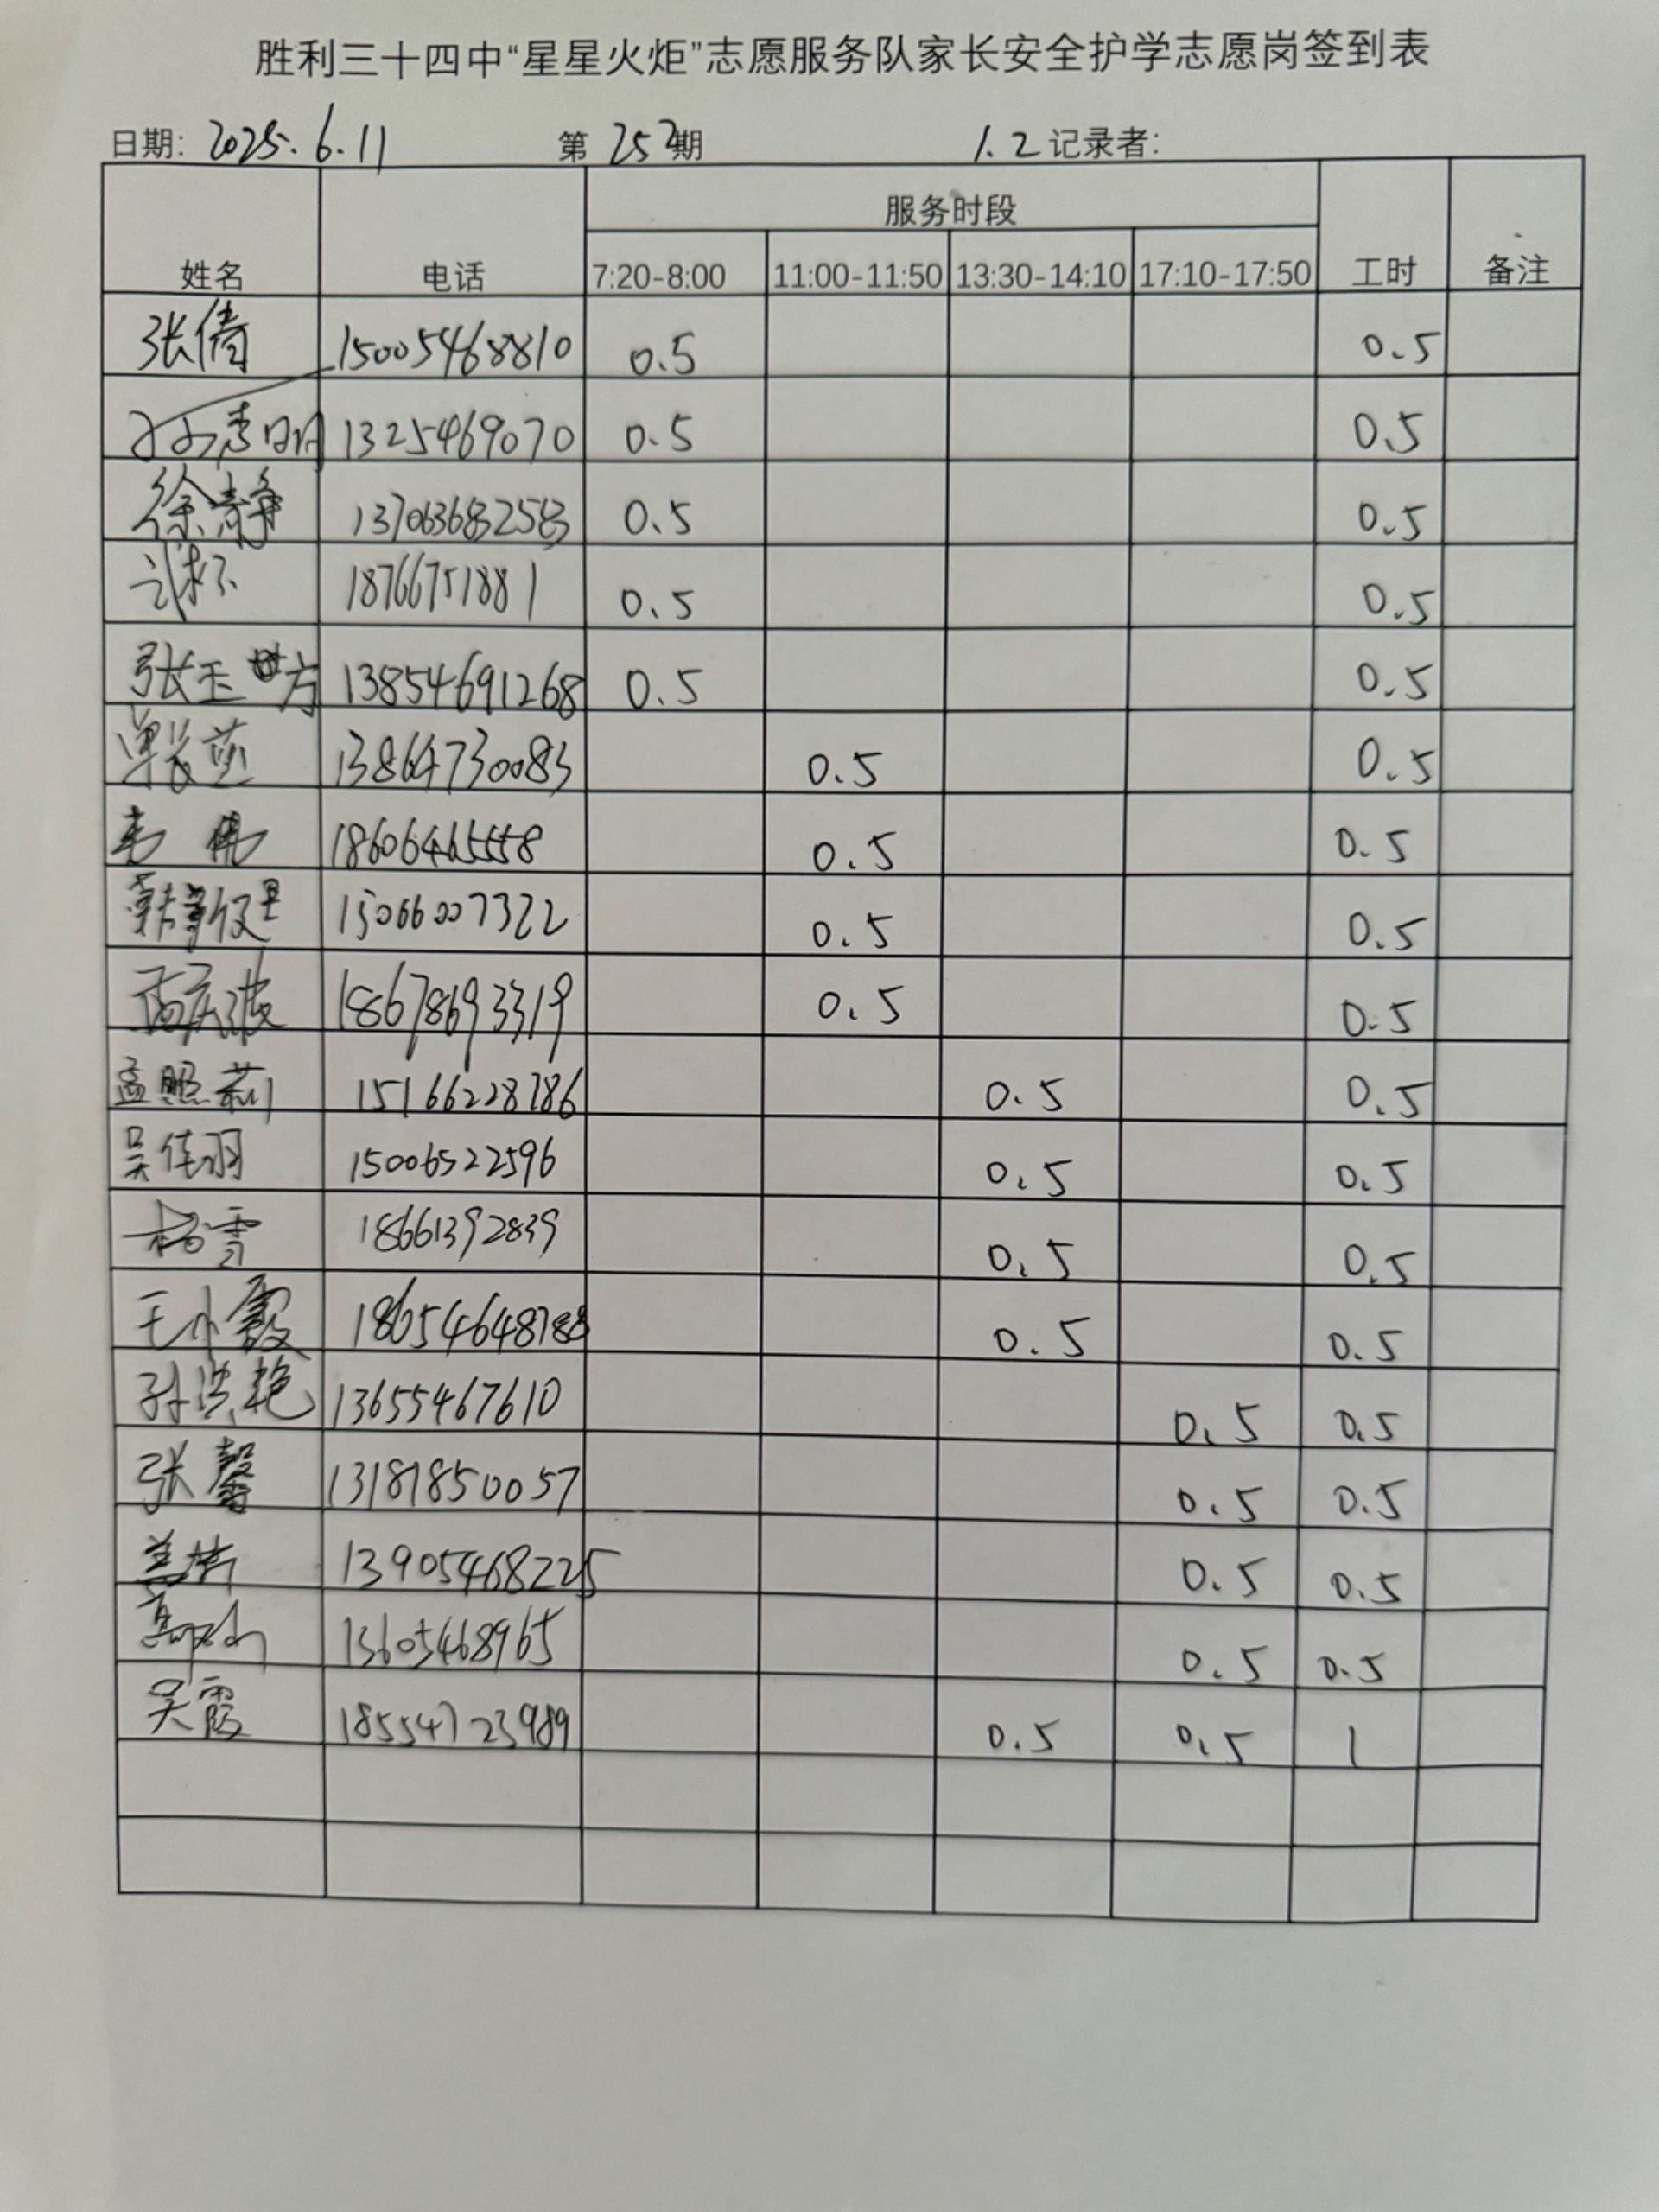 胜利三十四中“星星火炬”志愿服务队家长安全护学志愿岗签到表
日期: 2025.6.11 第 252期 1.2 记录者:
服务时段
姓名 电话 7:20-8:00 11:00-11:50 13:30-14:10 17:10-17:50 工时 备注
张倩 15005468810 0.5 0.5
1325469070 0.5 0.5
徐静 13706368258 0.5 0.5
18766751881 0.5 0.5
张玉芳 13854691268 0.5 0.5
单长英 13864730083 0.5 0.5
韦伟 18606465558 0.5 0.5
15066007322 0.5 0.5
孟庆波 18678693319 0.5 0.5
孟照莉 15166228786 0.5 0.5
吴佳羽 15006522596 0.5 0.5
杨雪 18661392839 0.5 0.5
王小霞 18654648788 0.5 0.5
孙洪艳 13655467610 0.5 0.5
张馨 13181850057 0.5 0.5
13905468225 0.5 0.5
13605468965 0.5 0.5
吴霞 18554723989 0.5 0.5 1